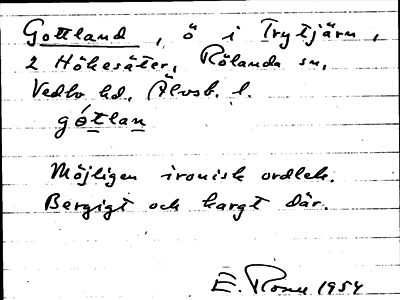 Gottland, ö i Trytjärn,
2 Hökesäter, Rölanda sn,
Vedbo hd, Älvsb. l.
gótlan
Möjligen ironisk ordlek.
Bergigt och kargt där.
E. Rosn 1954